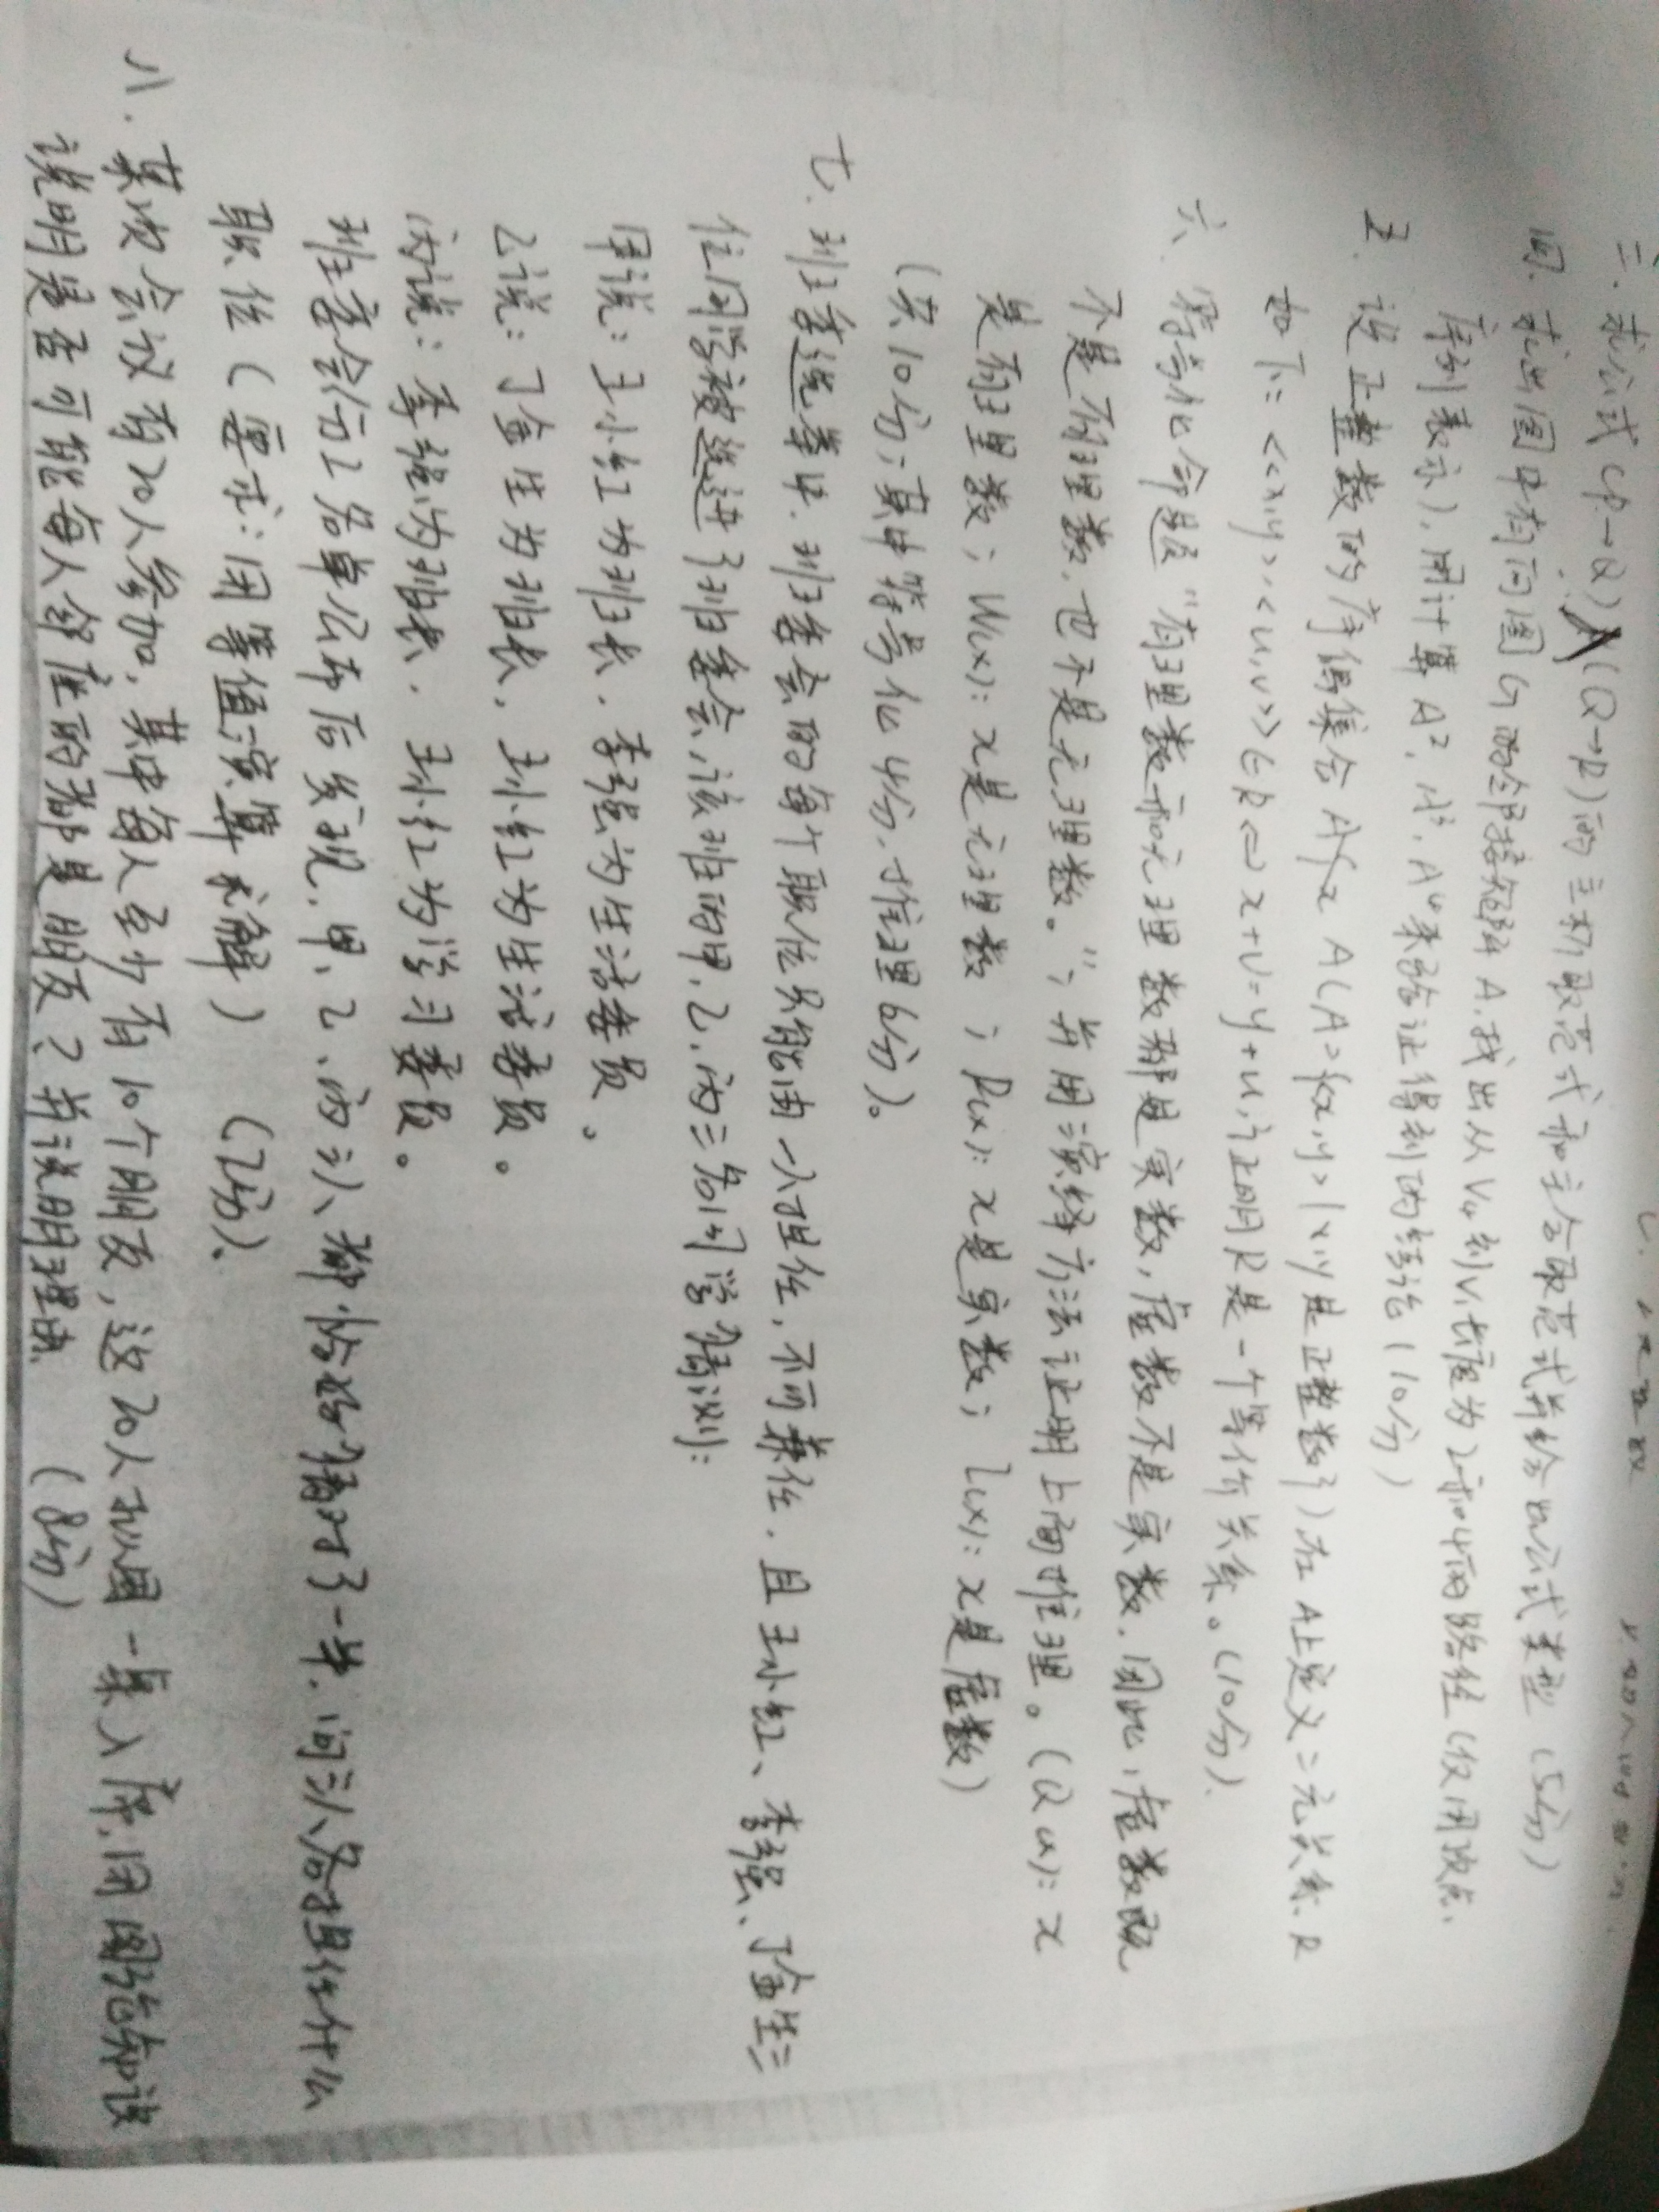 三. 求公式 (P→Q)∧(Q→R) 的主析取范式和主合取范式并给出公式类型 (5分)
四. 求出图中有向图 G 的邻接矩阵 A. 找出从 V4 到 V1 长度为2和4的路径 (仅用顶点
序列表示), 用计算 A², A³, A⁴ 来验证得到的结论 (10分)
五. 设正整数的序偶集合 A (A={<x,y>|x,y是正整数}) 在 A上定义二元关系 R
如下: <<x,y>,<u,v>>∈R⇔x+v=y+u, 证明R是一个等价关系。(10分).
六. 符号化命题“有理数和无理数都是实数, 虚数不是实数. 因此, 虚数既
不是有理数, 也不是无理数。”; 并用演绎方法证明上面推理。(Q(x): x
是有理数; W(x): x是无理数 ; R(x): x是实数; I(x): x是虚数)
(共10分; 其中符号化4分, 推理6分)。
七. 班委选举中. 班委会的每个职位只能由一人担任, 不可兼任. 且王小红、李强、丁金生三
位同学被选进了班委会, 该班的甲, 乙, 丙三名同学猜测:
甲说: 王小红为班长. 李强为生活委员。
乙说: 丁金生为班长, 王小红为生活委员。
丙说: 李强为班长. 王小红为学习委员。
班委会分工名单公布后发现, 甲、乙、丙三人都恰好猜对了一半. 问三人各担任什么
职位 (要求: 用等值演算求解) (7分)、
八. 某次会议有20人参加, 其中每人至少有10个朋友, 这20人拟围一桌入席, 用图论知识
说明是否可能每人邻座的都是朋友? 并说明理由. (8分)